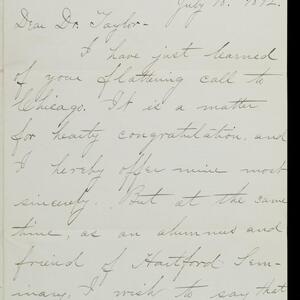 July 18. 1892.
Dear Dr. Taylor-
I have just learned
of your flattering call to
Chicago. It is a matter
for hearty congratulation, and
I hereby offer mine most
sincerely. But at the same
time, as an alumnus and
friend of Hartford Sem-
inary, I wish to say that